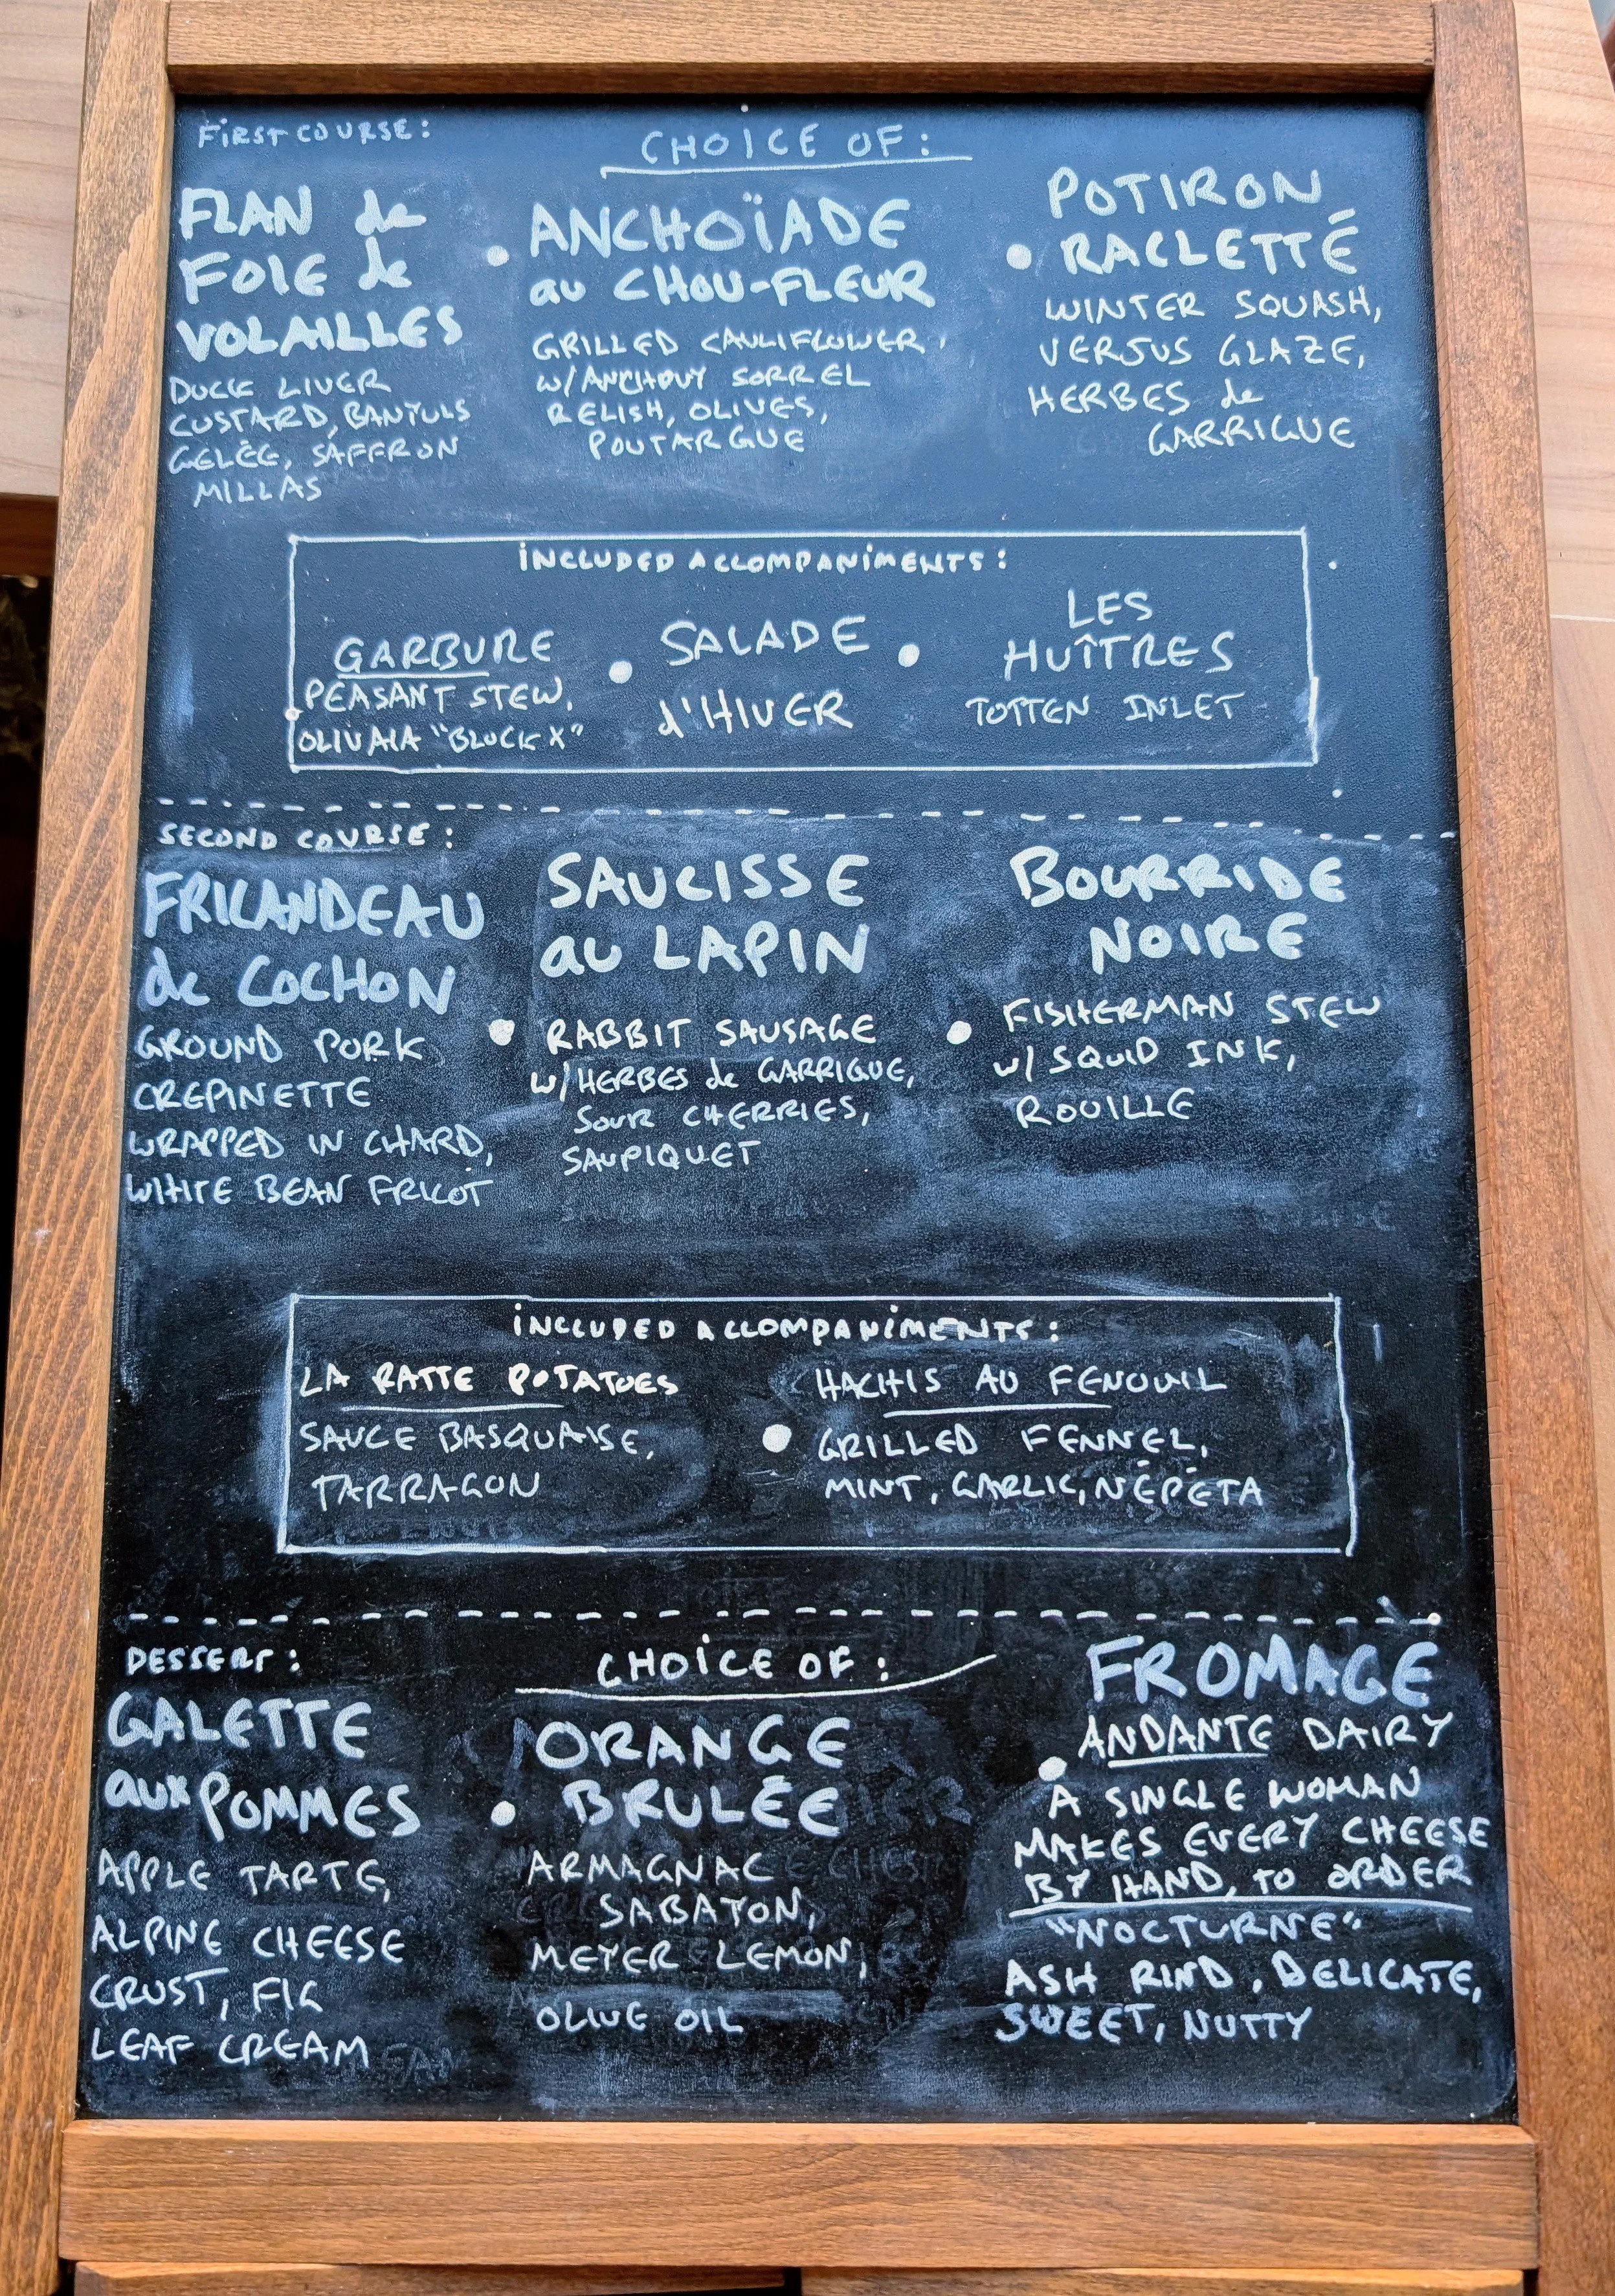 FIRST COURSE:
CHOICE OF:
FLAN de
FOIE de
VOLAILLES
DUCK LIVER
CUSTARD, BANYULS
GELÉE, SAFFRON
MILLAS
ANCHOÏADE
au CHOU-FLEUR
GRILLED CAULIFLOWER,
W/ANCHOVY SORREL
RELISH, OLIVES,
POUTARGUE
POTIRON
RACLETTÉ
WINTER SQUASH,
VERJUS GLAZE,
HERBES de
GARRIGUE
INCLUDED ACCOMPANIMENTS:
GARBURE
PEASANT STEW,
OLIVAIA "BLOCK X"
SALADE
d'HIVER
LES
HUÎTRES
TOTTEN INLET
SECOND COURSE:
FRICANDEAU
de COCHON
GROUND PORK
CREPINETTE
WRAPPED IN CHARD,
WHITE BEAN FRICOT
SAUCISSE
au LAPIN
RABBIT SAUSAGE
W/HERBES de GARRIGUE,
SOUR CHERRIES,
SAUPIQUET
BOURRIDE
NOIRE
FISHERMAN STEW
W/ SQUID INK,
ROUILLE
INCLUDED ACCOMPANIMENTS:
LA RATTE POTATOES
SAUCE BASQUAISE,
TARRAGON
HACHIS AU FENOUIL
GRILLED FENNEL,
MINT, GARLIC, NÉPÉTA
DESSERT:
CHOICE OF:
GALETTE
aux POMMES
APPLE TARTE,
ALPINE CHEESE
CRUST, FIG
LEAF CREAM
ORANGE
BRULÉE
ARMAGNAC
SABAYON,
MEYER LEMON,
OLIVE OIL
FROMAGE
ANDANTE DAIRY
A SINGLE WOMAN
MAKES EVERY CHEESE
BY HAND, TO ORDER
"NOCTURNE"
ASH RIND, DELICATE,
SWEET, NUTTY